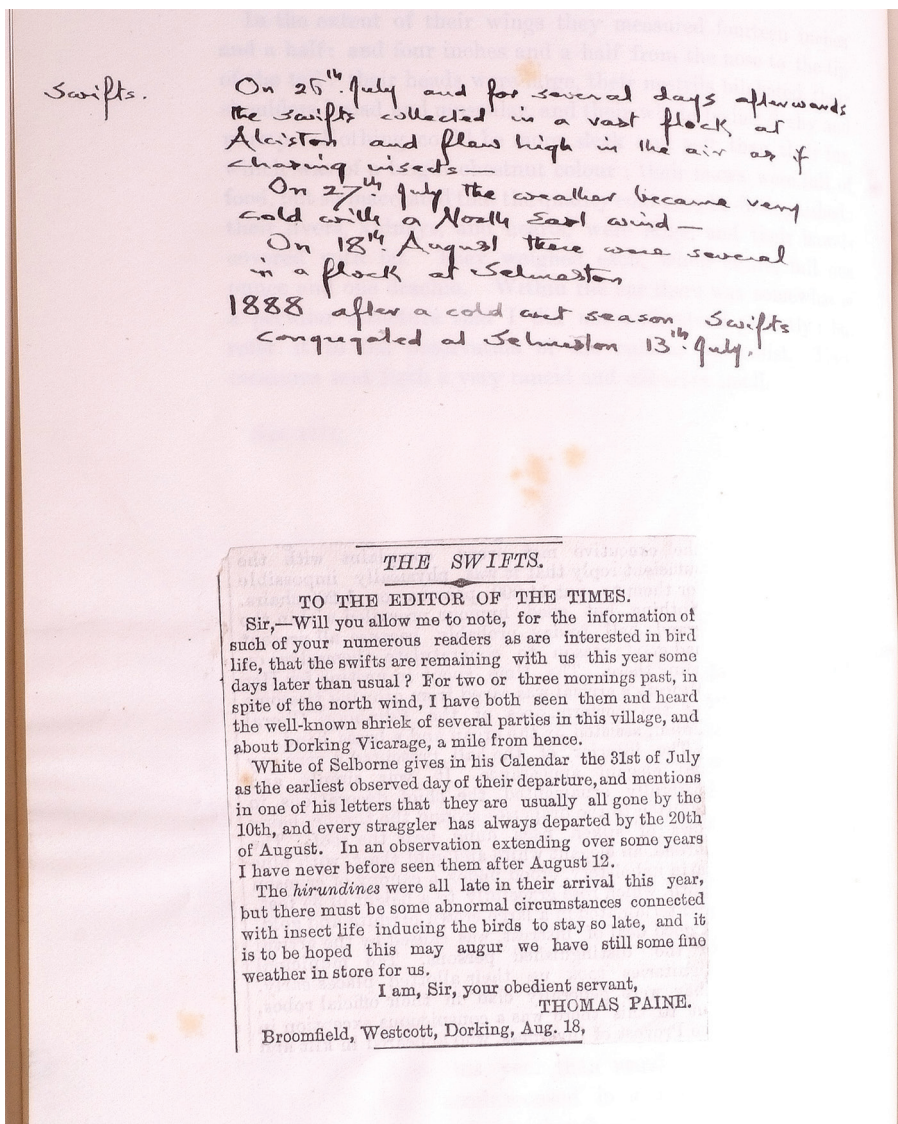 Swifts.
On 26th July and for several days afterwards
the swifts collected in a vast flock at
Alciston and flew high in the air as if
chasing insects.
On 27th July the weather became very
cold with a North East wind
On 18th August there were several
in a flock at Selmeston
1888 after a cold wet season, Swifts
Congregated at Selmeston 13th July.
THE SWIFTS.
TO THE EDITOR OF THE TIMES.
Sir,—Will you allow me to note, for the information of
such of your numerous readers as are interested in bird
life, that the swifts are remaining with us this year some
days later than usual? For two or three mornings past, in
spite of the north wind, I have both seen them and heard
the well-known shriek of several parties in this village, and
about Dorking Vicarage, a mile from hence.
White of Selborne gives in his Calendar the 31st of July
as the earliest observed day of their departure, and mentions
in one of his letters that they are usually all gone by the
10th, and every straggler has always departed by the 20th
of August. In an observation extending over some years
I have never before seen them after August 12.
The hirundines were all late in their arrival this year,
but there must be some abnormal circumstances connected
with insect life inducing the birds to stay so late, and it
is to be hoped this may augur we have still some fine
weather in store for us.
I am, Sir, your obedient servant,
THOMAS PAINE.
Broomfield, Westcott, Dorking, Aug. 18,